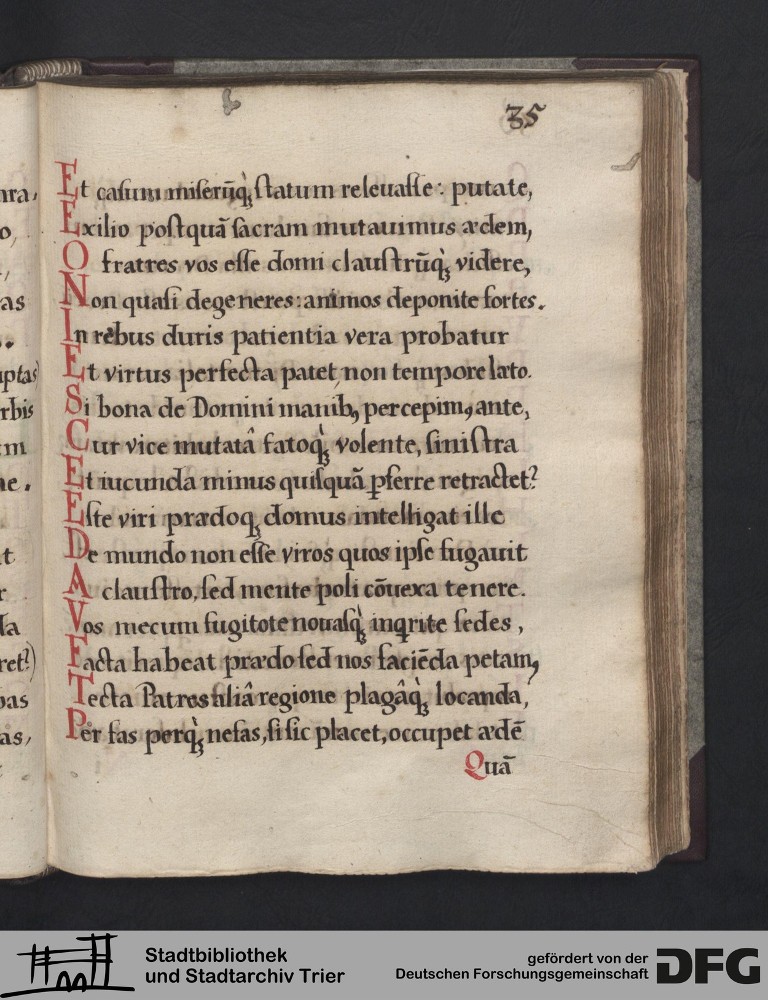 35
Et casum miserũq̀ʒ statum releuasse: putate,
Exilio postquã sacram mutauimus ædem,
O fratres vos esse domi claustrũq̀ʒ videre,
Non quasi degeneres: animos deponite fortes.
In rebus duris patientia vera probatur
Et virtus perfecta patet, non tempore læto.
Si bona de Domini manibꝫ percepimꝰ ante,
Cur vice mutatâ fatoq̀ʒ volente, sinistra
Et iucunda minus quisquã ꝑferre retractet?
Este viri prædoqʒ domus intelligat ille
De mundo non esse viros quos ipse fugauit
A claustro, sed mente poli cõuexa tenere.
Vos mecum fugitote nouasq̀ʒ inqrite sedes,
Facta habeat prædo sed nos faciẽda petamꝰ
Tecta Patres aliâ regione plagâq̀ʒ locanda,
Per fas perq̀ʒ nefas, si sic placet, occupet ædẽ
Quã
ara,
o,
as
uptas
rbis
m
ne.
t
r
da
ret?)
bas
as,
Stadtbibliothek
und Stadtarchiv Trier
gefördert von der
Deutschen Forschungsgemeinschaft
DFG